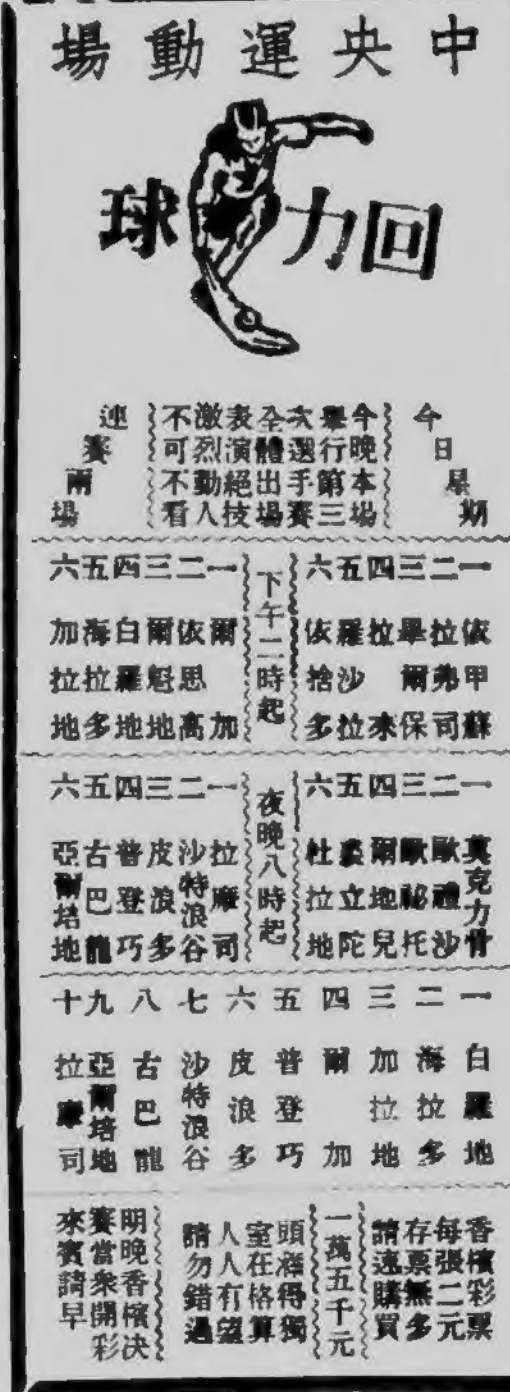 中央運動場
回力球
今日星期
今晚本場
舉行第三
次選手賽
全體出場
表演絕技
激烈動人
不可不看
連賽兩場
一 依甲蘇
二 拉弗司
三 畢爾保
四 拉來
五 羅沙拉
六 依捨多
下午二時起
一 爾加
二 依思高
三 爾魁地
四 白羅地
五 海拉多
六 加拉地
一 莫克力骨
二 歐禮沙
三 歐祕托
四 爾地兒
五 裘立陀
六 杜拉地
夜晚八時起
一 拉摩司
二 沙特浪谷
三 皮浪多
四 普登巧
五 古巴龍
六 亞爾培地
一 白羅地
二 海拉多
三 加拉地
四 爾加
五 普登巧
六 皮浪多
七 沙特浪谷
八 古巴龍
九 亞爾培地
十 拉摩司
香檳彩票
每張二元
存票無多
請速購買
一萬五千元
頭獎得獨
室在格算
人人有望
請勿錯過
明晚香檳決
賽當衆開彩
來賓請早